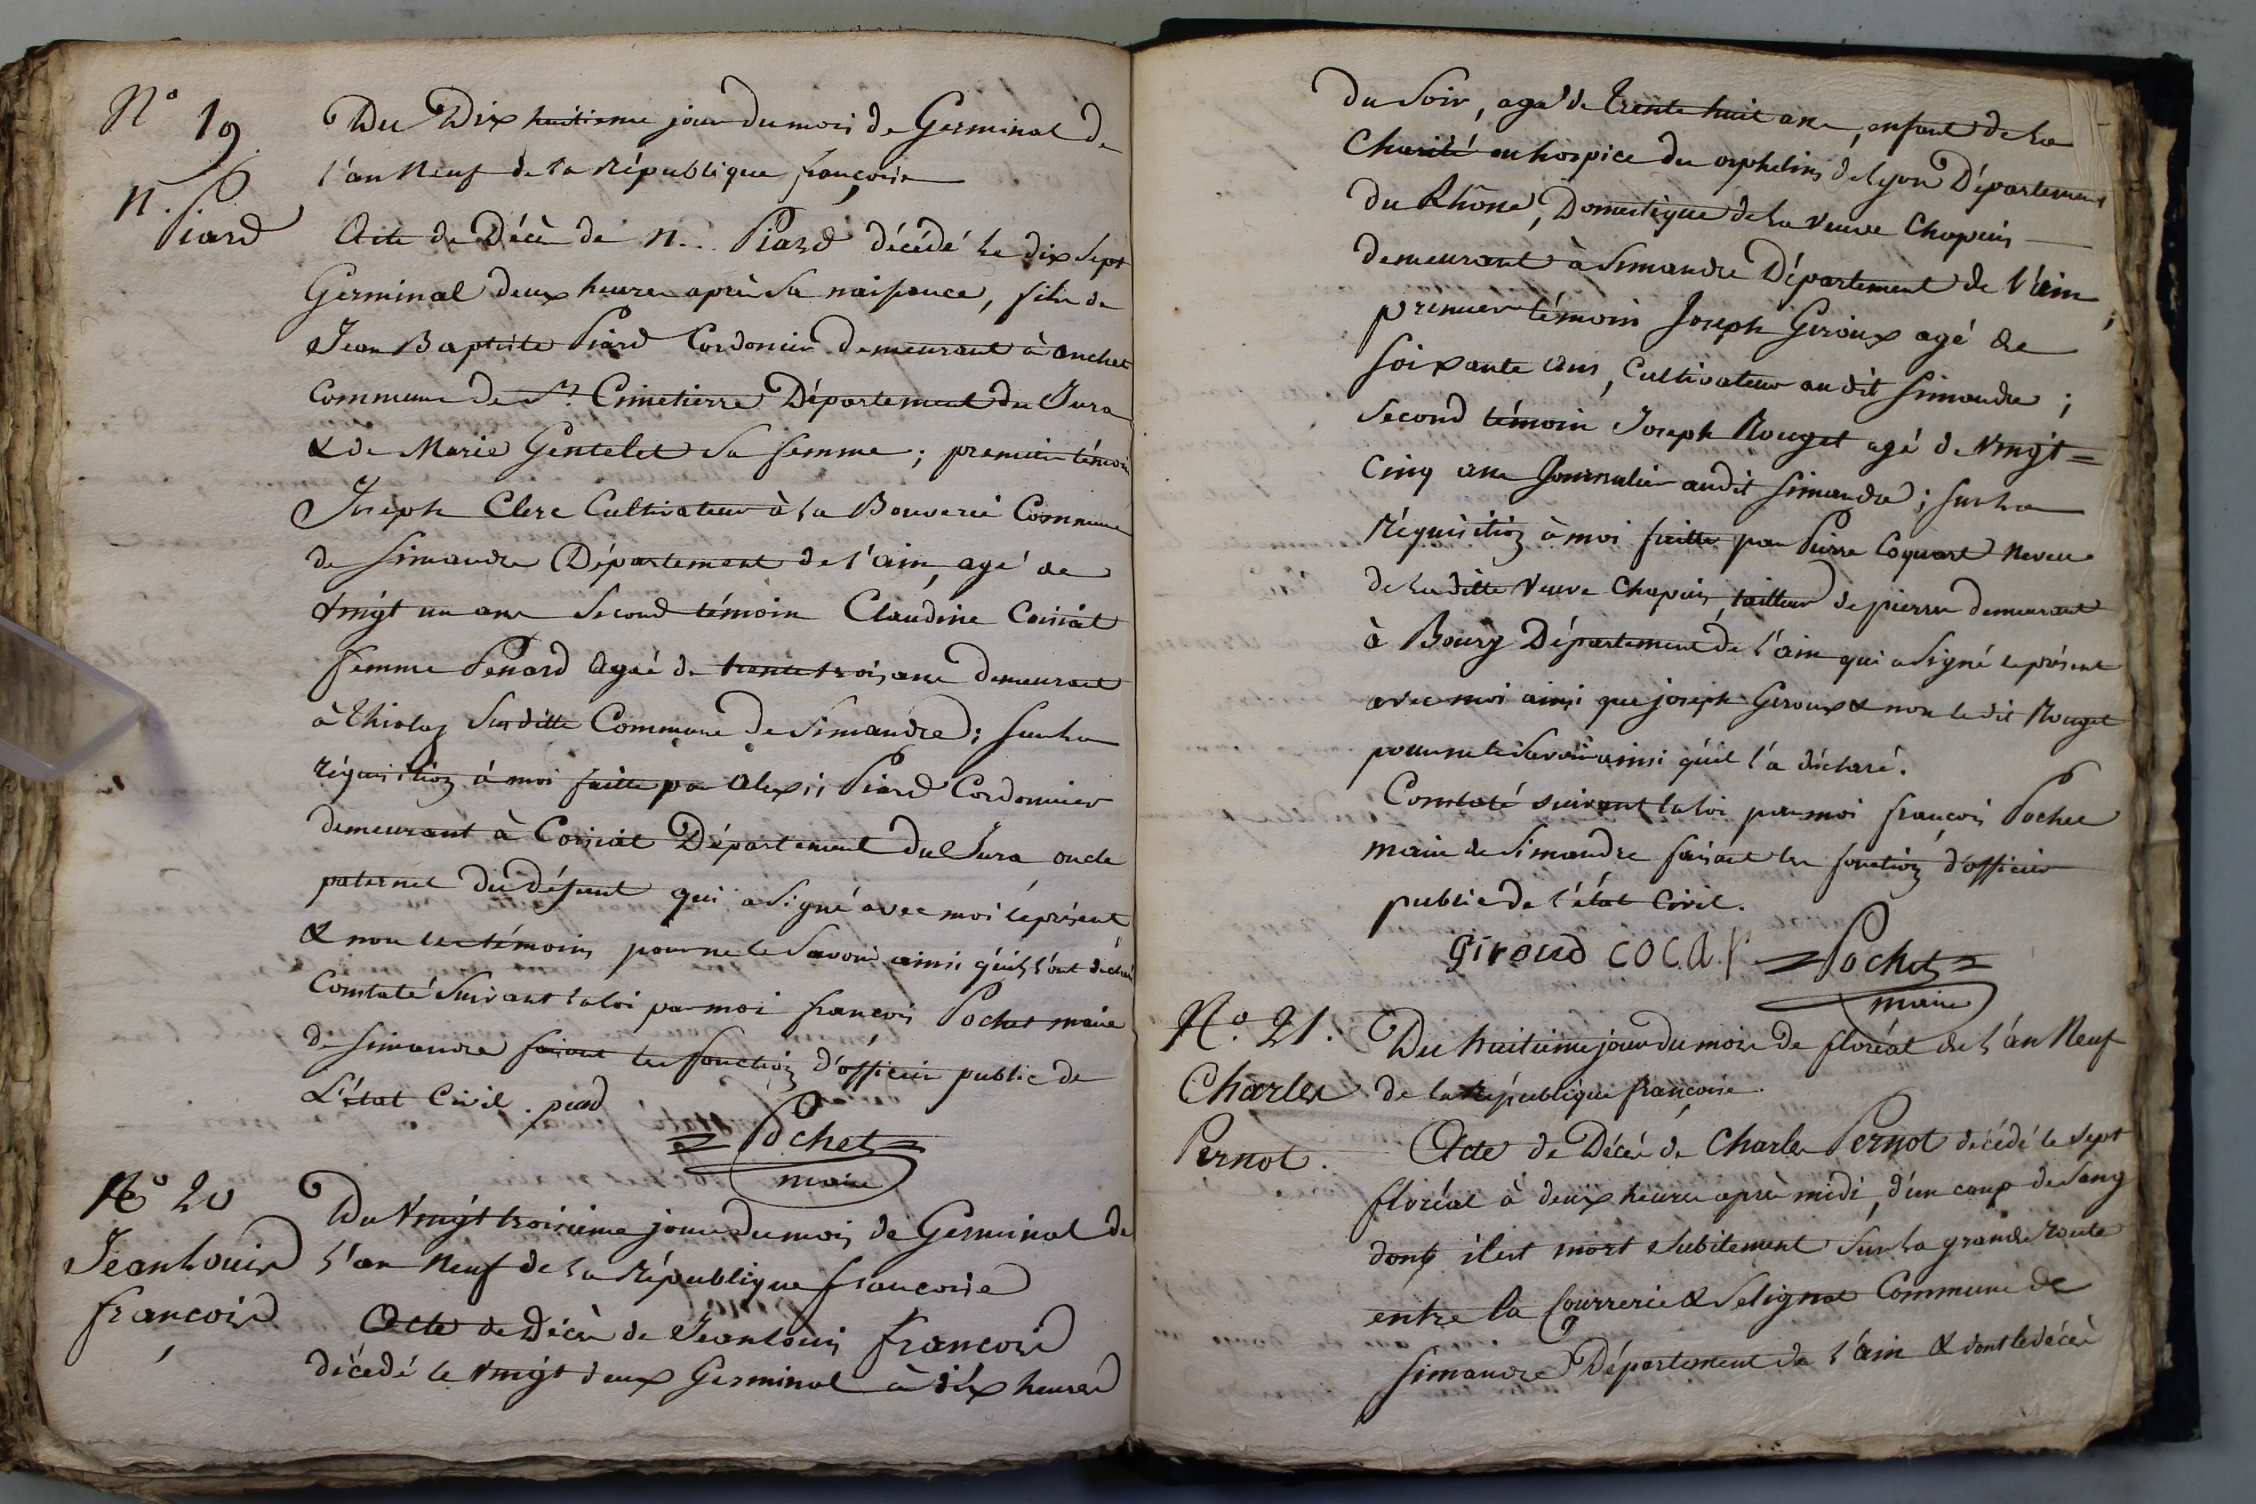 N° 19.
N. Piard
Du Dix huitieme jour du mois de Germinal de
l'an Neuf de la République françoise
Acte de Décès de N... Piard décédé le dix sept
Germinal deux heures après sa naissance, fils de
Jean Baptiste Piard Cordonier demeurant à onchet
Commune de St. Cimetierre Département du Jura
& de Marie Gentelet sa femme ; premier témoin
Joseph Clerc Cultivateur à la Bouverie Commune
de Simandre Département de l'ain, agé de
vingt un ans second témoin Claudine Coisiat
femme Penard agée de trente trois ans demeurant
à thiolas susditte Commune de Simandre ; sur la
réquisition à moi faitte par alexis Piard Cordonnier
demeurant à Coisiat Département du Jura oncle
paternel du défunt qui a signé avec moi le présent
& non les témoins pour ne le savoir ainsi qu'ils l'ont déclaré
Constaté suivant la loi par moi françois Pochet maire
de Simandre faisant les fonction d'officier public de
L'état Civil. piard
Pochet
maire
N° 20
Jean Louis
françois
Du Vingt troisieme jour du mois de Germinal de
l'an Neuf de la République françoise
Acte de Décès de Jean Louis françois
décédé le vingt deux Germinal à dix heures
du soir, agé de trente huit ans, enfant de la
Charité ou hospice des orphelins de lyon Département
du Rhône, Domestique de la veuve Chapuis
demeurant à Simandre Département de l'ain ;
premier témoin Joseph Geroux agé de
soixante ans, Cultivateur au dit Simandre ;
second témoin Joseph Rouget agé de vingt=
Cinq ans Journalier audit Simandre ; sur la
réquisition à moi faitte par Pierre Coquart neveu
de la ditte veuve Chapuis, tailleur de pierres demeurant
à Bourg Département de l'ain qui a signé le présent
avec moi ainsi que joseph Geroux & non le dit Rouget
pour ne le savoir ainsi qu'il l'a déclaré.
Constaté suivant la loi par moi françois Pochet
maire de Simandre faisant les fonction d'officier
public de l'état Civil.
Giroud Pochet
maire
N°. 21.
Charles
Pernot.
Du huitieme jour du mois de floréal de l'an Neuf
de la République françoise.
Acte de Décès de Charles Pernot décédé le sept
floréal à deux heures après midi, d'un coup de sang
dont il est mort subitement sur la grande route
entre la Courrerie & Selignat Commune de
Simandre Département de l'ain & dont le décès